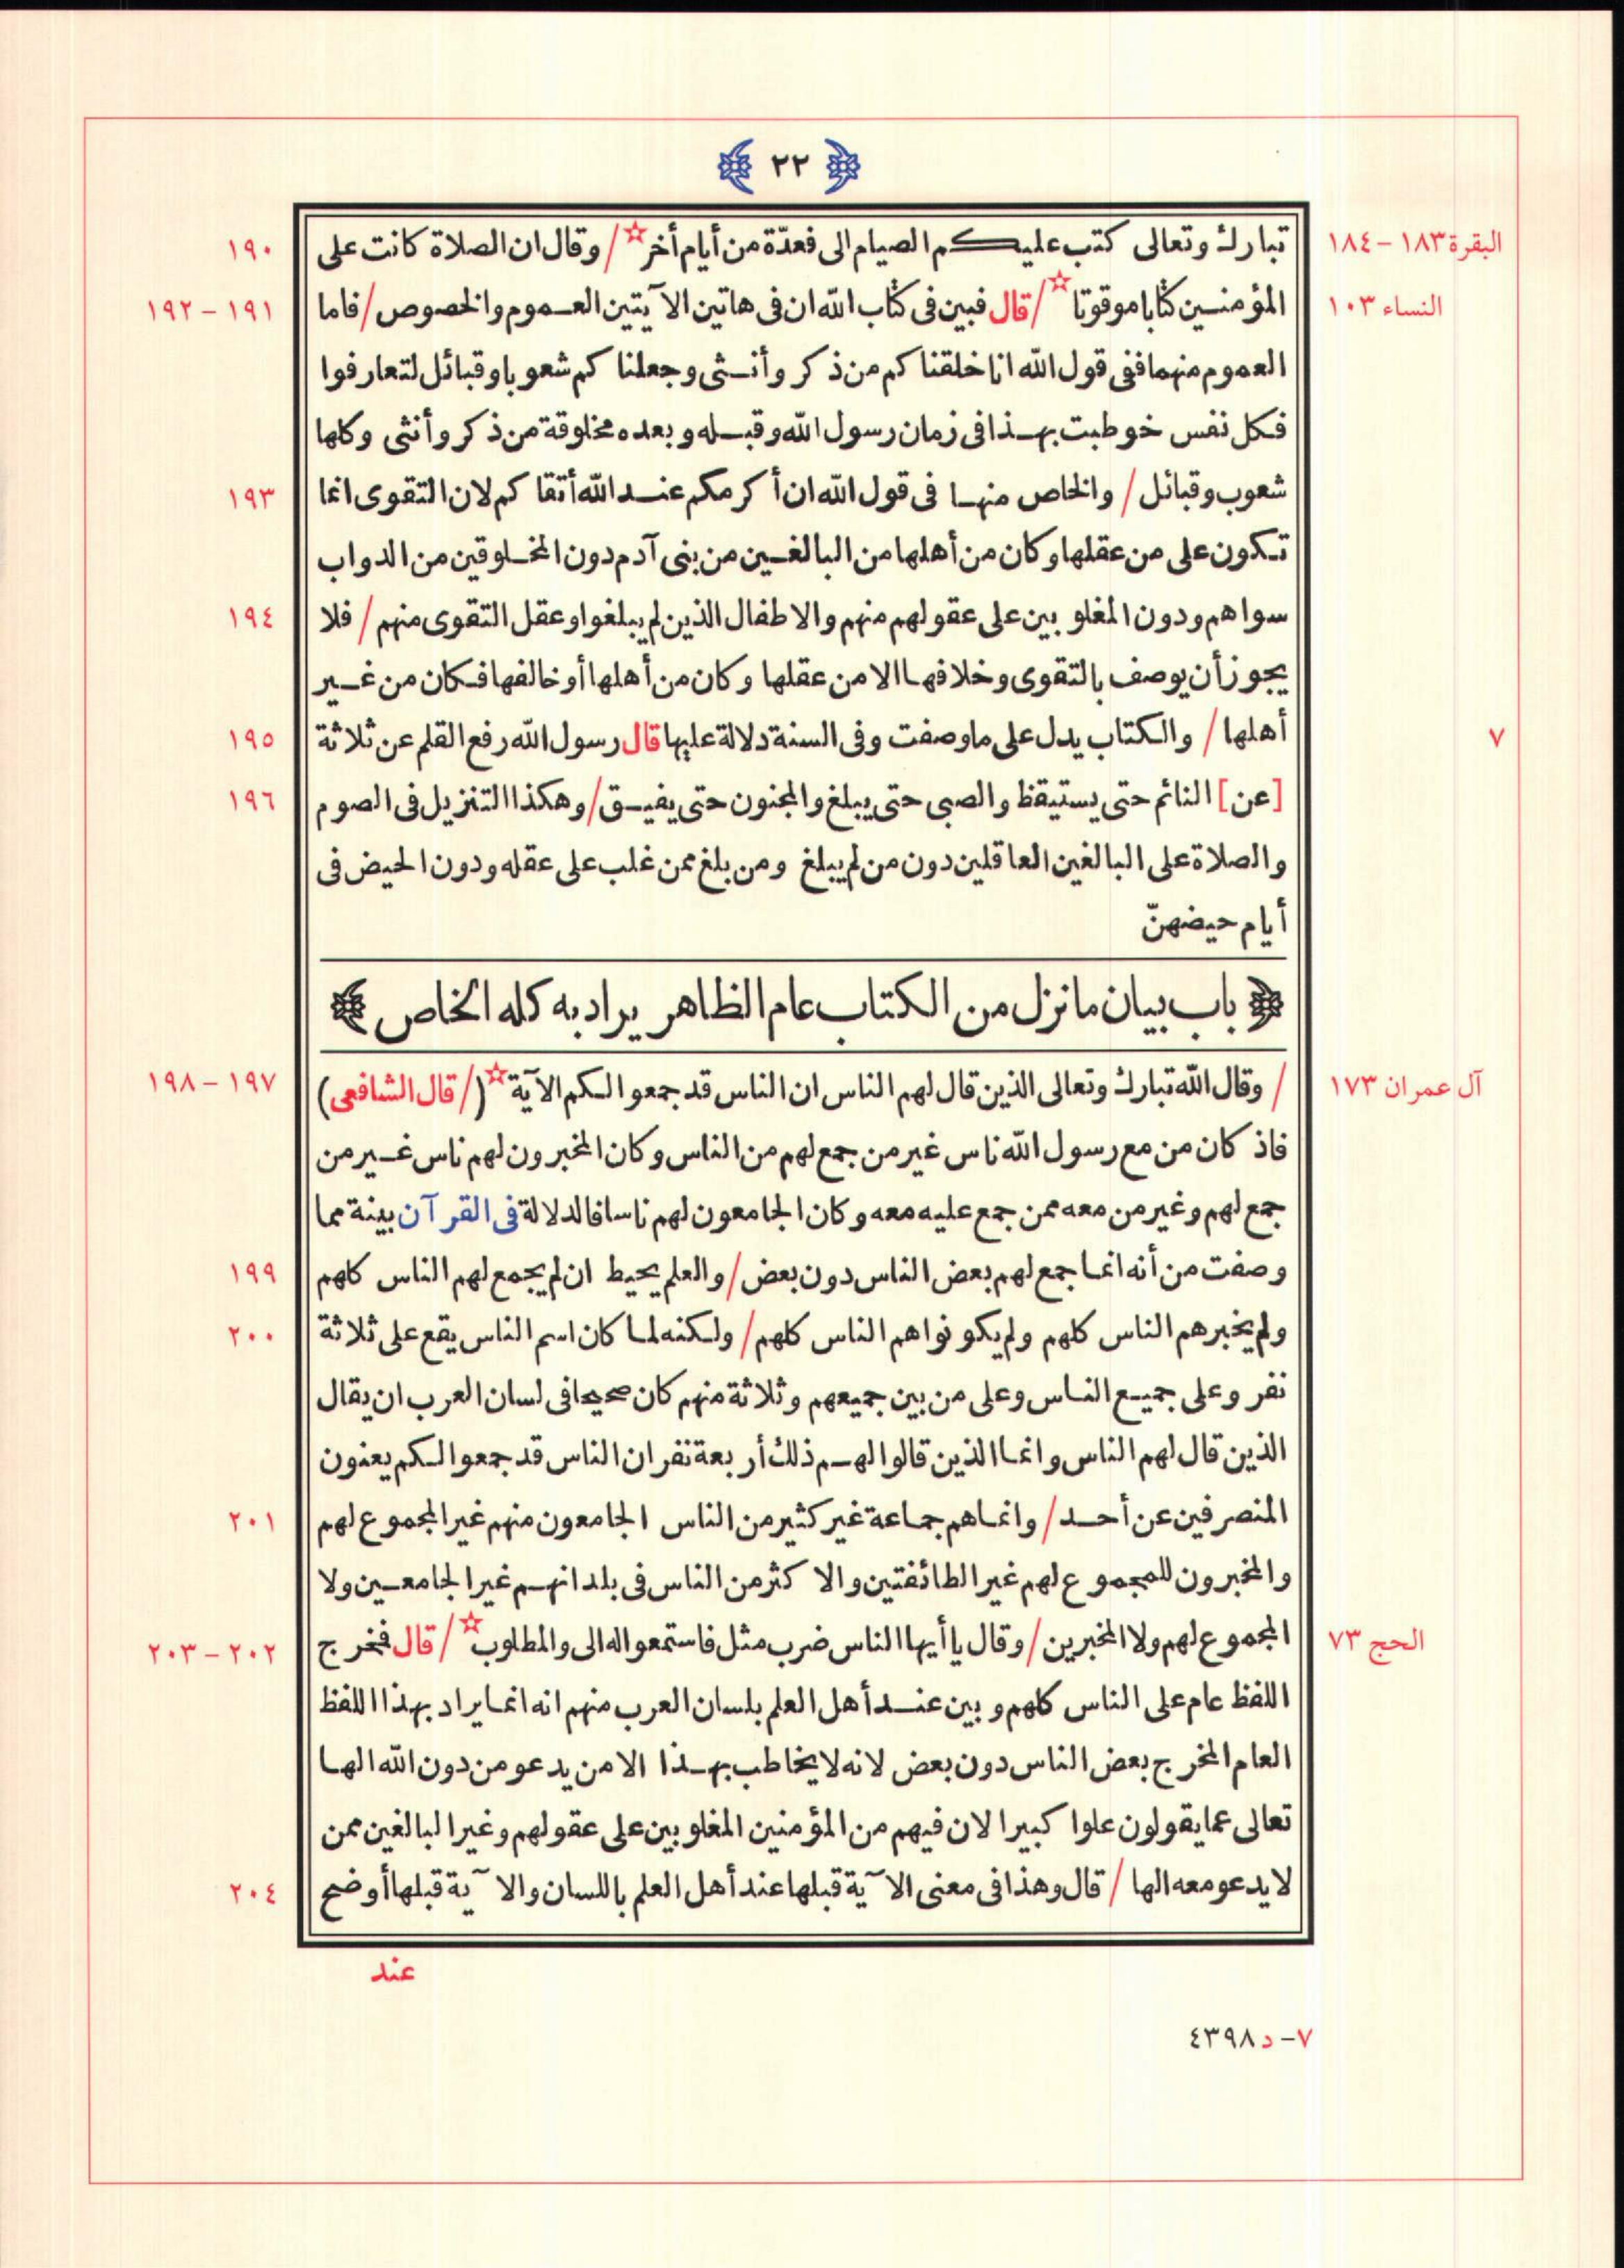 ٢٢
البقرة ١٨٣ – ١٨٤
تبارك وتعالى كتب عليكم الصيام الى فعدّة من أيام أخر☆ / وقال ان الصلاة كانت على
١٩٠
النساء ١٠٣
المؤمنين كتابا موقوتا☆ / قال فبين فى كتاب الله ان فى هاتين الآيتين العموم والخصوص / فاما
١٩١ – ١٩٢
العموم منهما ففى قول الله انا خلقناكم من ذكر وأنثى وجعلناكم شعوبا وقبائل لتعارفوا
فكل نفس خوطبت بهذا فى زمان رسول الله وقبله وبعده مخلوقة من ذكر وأنثى وكلها
شعوب وقبائل / والخاص منها فى قول الله ان أكرمكم عند الله أتقاكم لان التقوى انما
١٩٣
تكون على من عقلها وكان من أهلها من البالغين من بنى آدم دون المخلوقين من الدواب
سواهم ودون المغلوبين على عقولهم منهم والاطفال الذين لم يبلغوا وعقل التقوى منهم / فلا
١٩٤
يجوز أن يوصف بالتقوى وخلافها الا من عقلها وكان من أهلها أو خالفها فكان من غير
٧
أهلها / والكتاب يدل على ما وصفت وفى السنة دلالة عليها قال رسول الله رفع القلم عن ثلاثة
١٩٥
[عن] النائم حتى يستيقظ والصبى حتى يبلغ والمجنون حتى يفيق / وهكذا التنزيل فى الصوم
١٩٦
والصلاة على البالغين العاقلين دون من لم يبلغ ومن بلغ ممن غلب على عقله ودون الحيض فى
أيام حيضهنّ
باب بيان ما نزل من الكتاب عام الظاهر يراد به كله الخاص
آل عمران ١٧٣
/ وقال الله تبارك وتعالى الذين قال لهم الناس ان الناس قد جمعوا لكم الآية☆ (/ قال الشافعى)
١٩٧ – ١٩٨
فاذ كان من مع رسول الله ناس غير من جمع لهم من الناس وكان المخبرون لهم ناس غير من
جمع لهم وغير من معه ممن جمع عليه معه وكان الجامعون لهم ناسا فالدلالة فى القرآن بينة مما
وصفت من أنه انما جمع لهم بعض الناس دون بعض / والعلم يحيط ان لم يجمع لهم الناس كلهم
١٩٩
ولم يخبرهم الناس كلهم ولم يكونوا هم الناس كلهم / ولكنه لما كان اسم الناس يقع على ثلاثة
٢٠٠
نفر وعلى جميع الناس وعلى من بين جميعهم وثلاثة منهم كان صحيحا فى لسان العرب ان يقال
الذين قال لهم الناس وانما الذين قالوا لهم ذلك أربعة نفر ان الناس قد جمعوا لكم يعنون
المنصرفين عن أحد / وانما هم جماعة غير كثير من الناس الجامعون منهم غير المجموع لهم
٢٠١
والمخبرون للمجموع لهم غير الطائفتين والاكثر من الناس فى بلدانهم غير الجامعين ولا
الحج ٧٣
المجموع لهم ولا المخبرين / وقال يا أيها الناس ضرب مثل فاستمعوا له الى والمطلوب☆ / قال فخرج
٢٠٢ – ٢٠٣
اللفظ عام على الناس كلهم وبين عند أهل العلم بلسان العرب منهم انه انما يراد بهذا اللفظ
العام المخرج بعض الناس دون بعض لانه لا يخاطب بهذا الا من يدعو من دون الله الها
تعالى عما يقولون علوا كبيرا لان فيهم من المؤمنين المغلوبين على عقولهم وغير البالغين ممن
لا يدعو معه الها / قال وهذا فى معنى الآية قبلها عند أهل العلم باللسان والآية قبلها أوضح
٢٠٤
عند
٧– د ٤٣٩٨